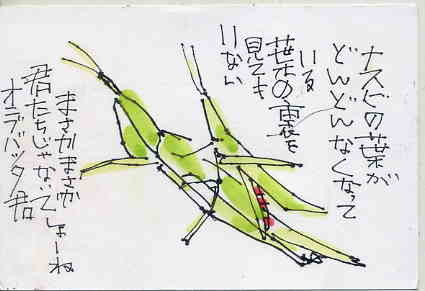 ナスビの葉が
どんどんなくなって
いる
葉の裏を
見ても
いない
まさかまさか
君たちじゃないでしょーね
オンブバッタ君